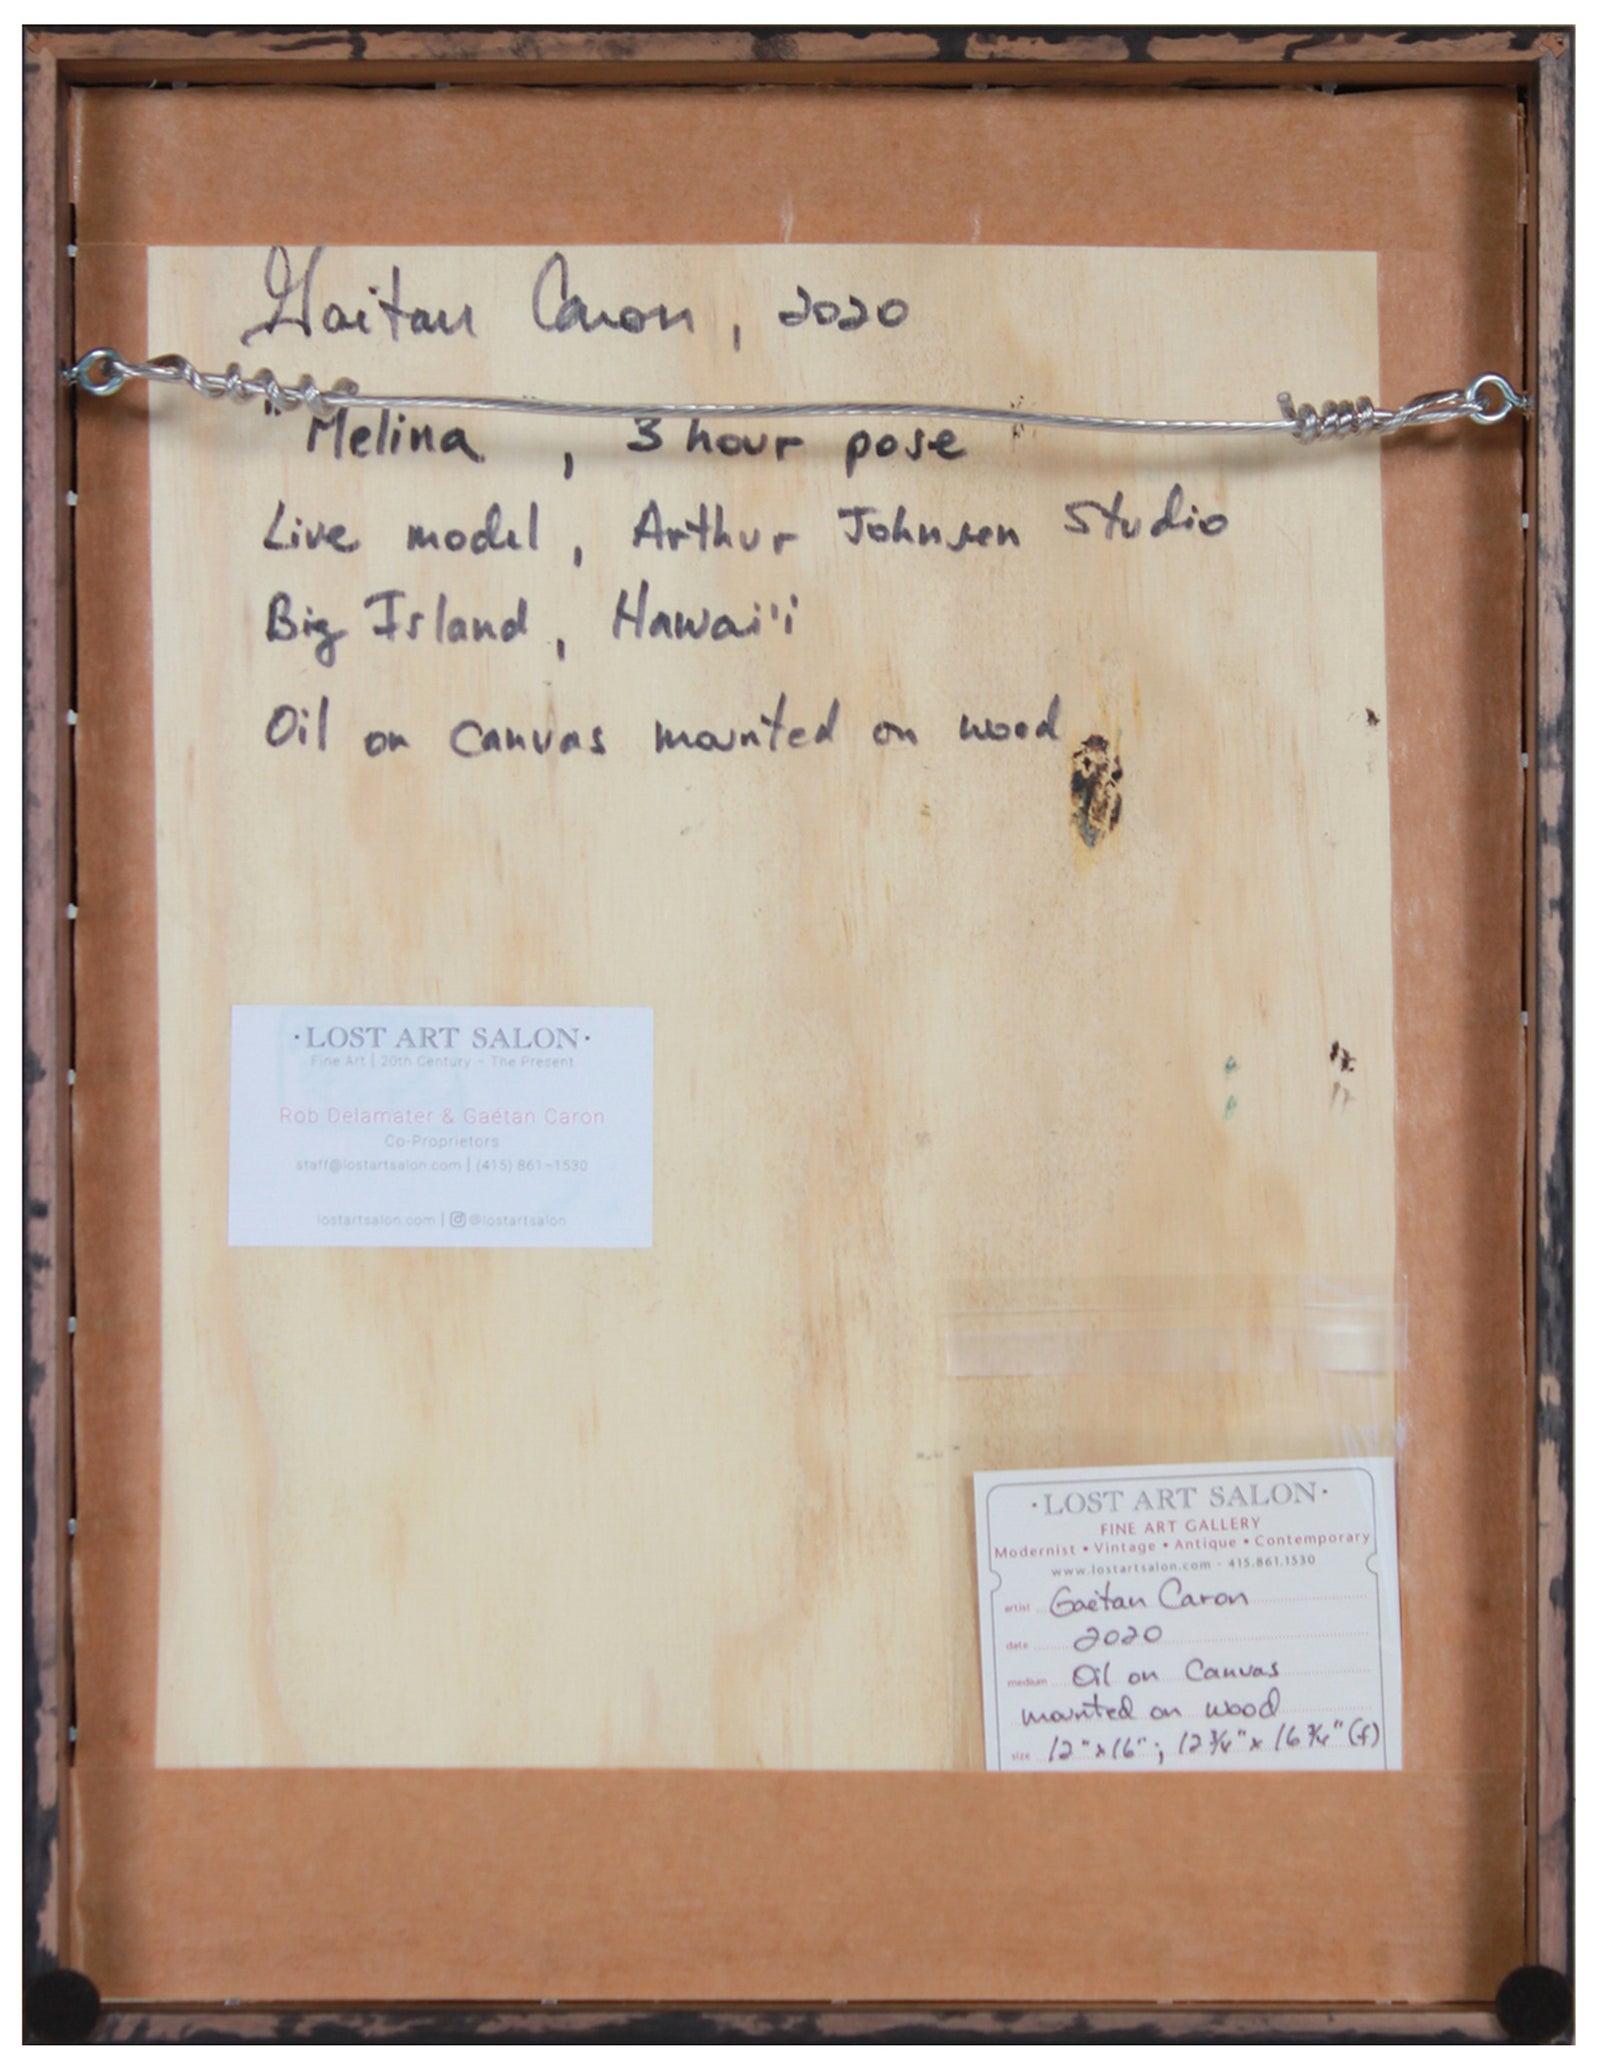 Gaétan Caron, 2020
"Melina", 3 hour pose
Live model, Arthur Johnsen Studio
Big Island, Hawai'i
Oil on canvas mounted on wood
·LOST ART SALON·
Fine Art | 20th Century – The Present
Rob Delamater & Gaétan Caron
Co-Proprietors
staff@lostartsalon.com | (415) 861-1530
lostartsalon.com | @lostartsalon
·LOST ART SALON·
FINE ART GALLERY
Modernist • Vintage • Antique • Contemporary
www.lostartsalon.com - 415.861.1530
artist Gaétan Caron
date 2020
medium Oil on Canvas
mounted on wood
size 12"x16"; 12 3/4" x 16 3/4" (f)